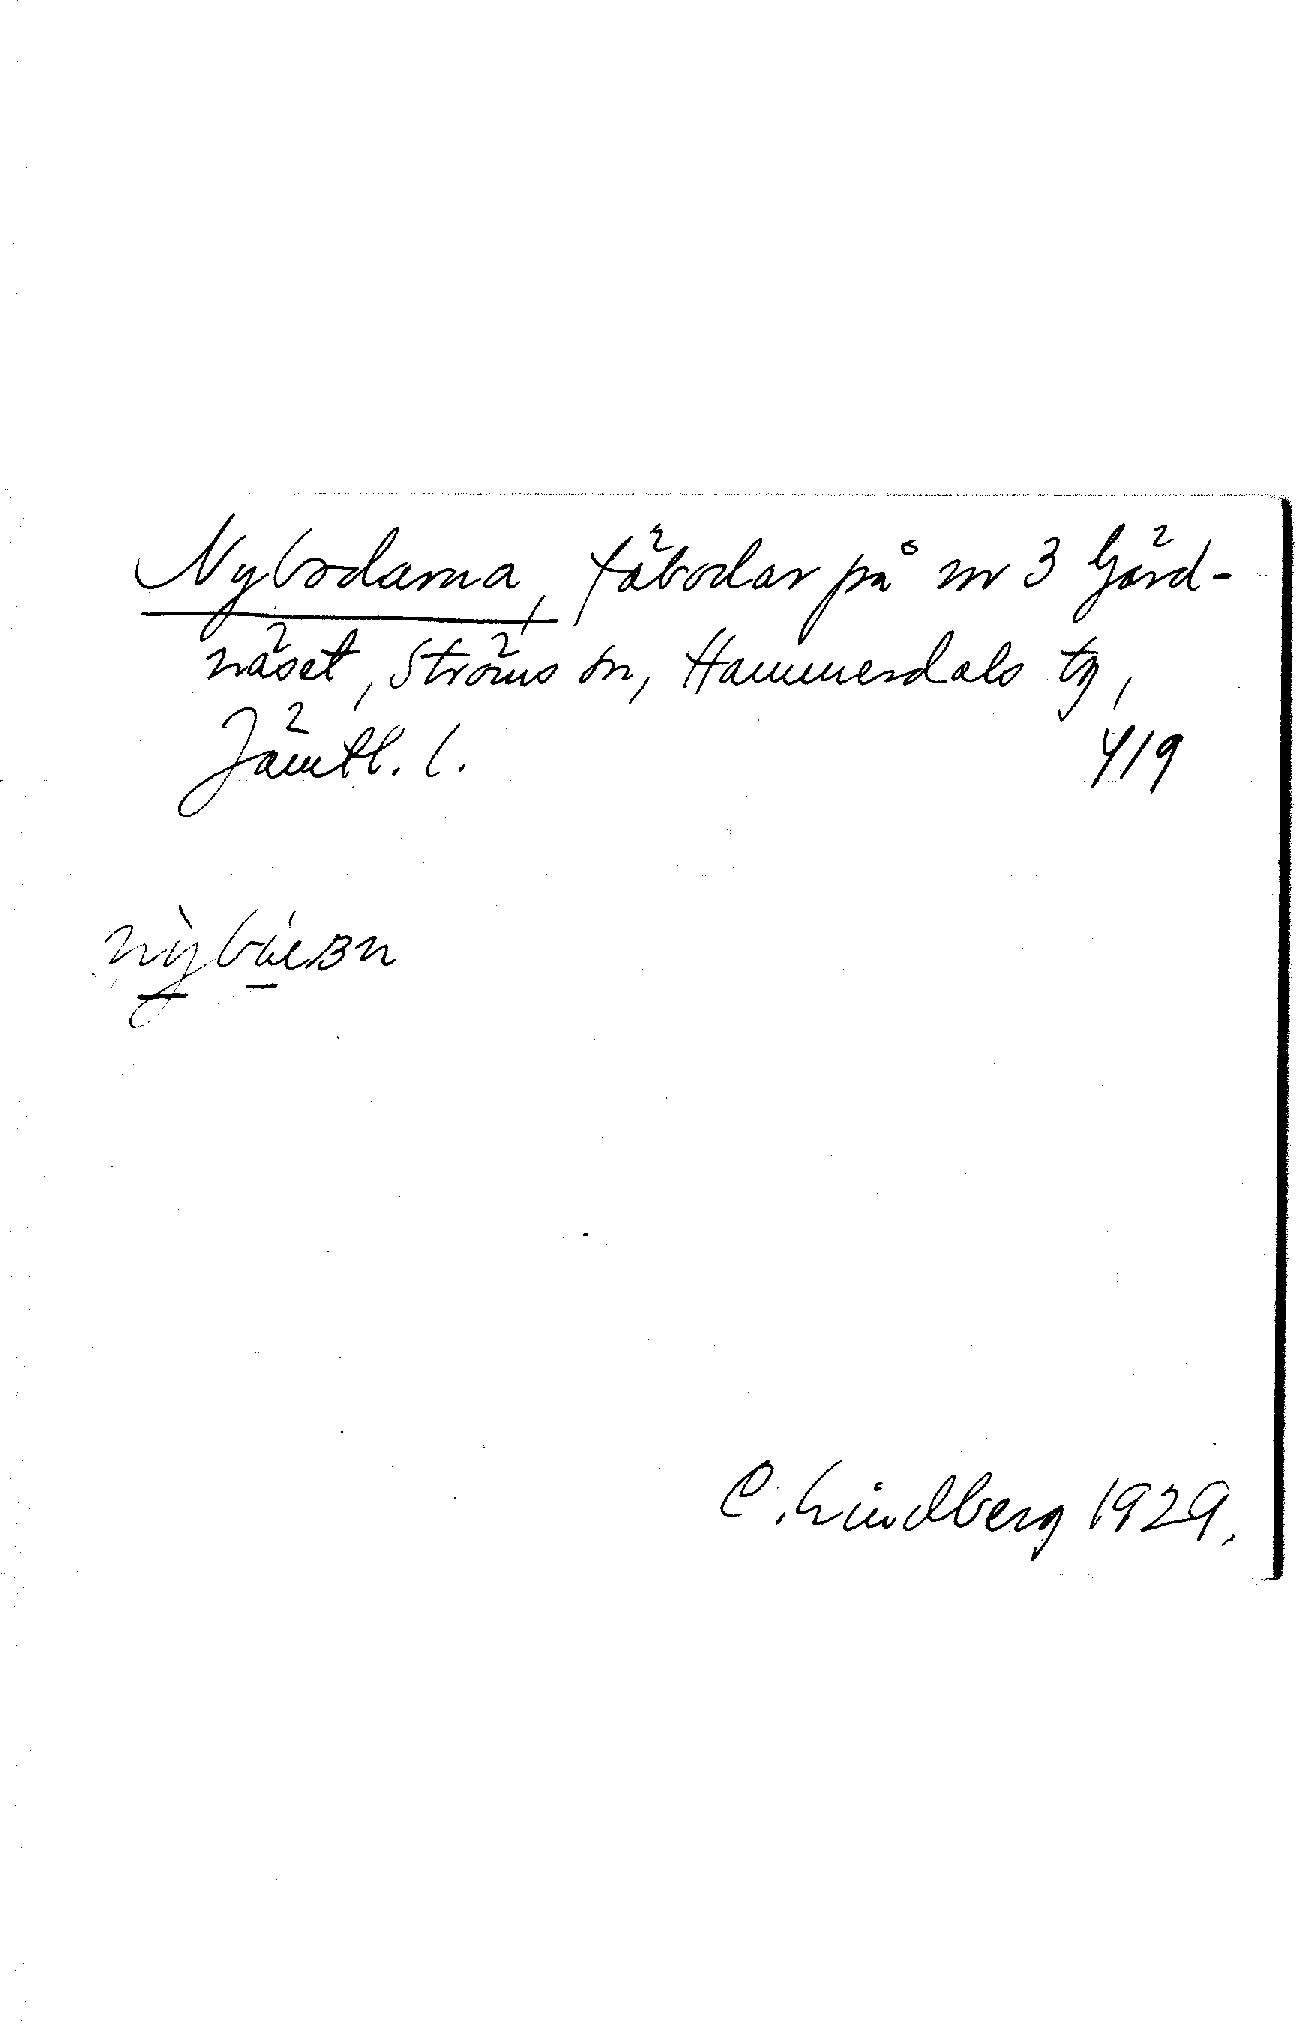 Nybodarna, fäbodar på nr 3 Gärd-
näset, Ströms sn, Hammerdals tg,
Jämtl. l.
419
C. Lindberg 1929.